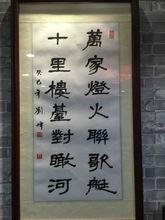 萬家燈火聯歌艇
十里樓臺對瞰河
癸巳年劉